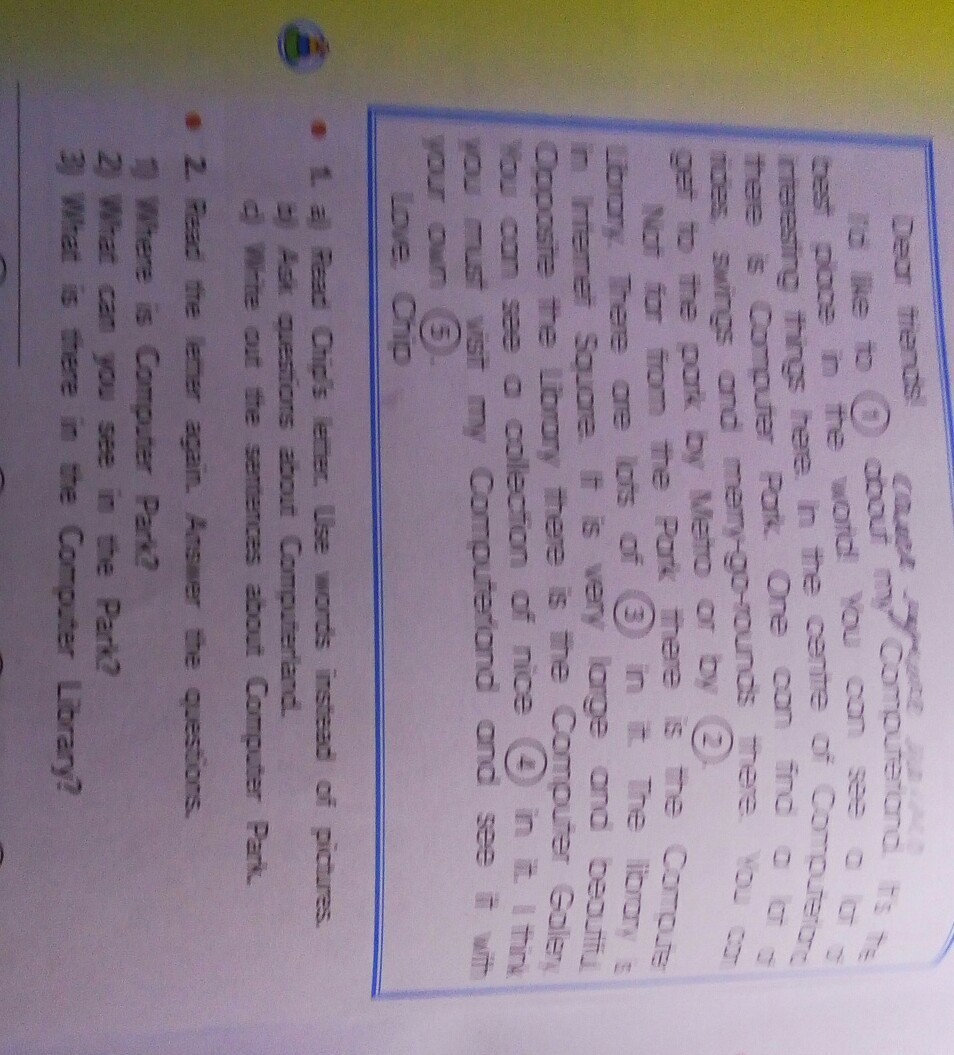 Dear friends!
I'd like to ① about my Computerland. It's the
best place in the world! You can see a lot of
interesting things here. In the centre of Computerland
there is Computer Park. One can find a lot of
rides, swings and merry-go-rounds there. You can
get to the park by Metro or by ②.
Not far from the Park there is the Computer
Library. There are lots of ③ in it. The library is
in Internet Square. It is very large and beautiful.
Opposite the Library there is the Computer Gallery.
You can see a collection of nice ④ in it. I think
you must visit my Computerland and see it with
your own ⑤.
Love, Chip
1. a) Read Chip's letter. Use words instead of pictures.
b) Ask questions about Computerland.
c) Write out the sentences about Computer Park.
2. Read the letter again. Answer the questions.
1) Where is Computer Park?
2) What can you see in the Park?
3) What is there in the Computer Library?